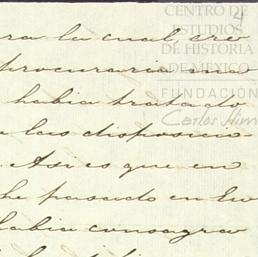 CENTRO DE
ESTUDIOS
DE HISTORIA
DE MEXICO
FUNDACIÓN
Carlos Slim
4
ra la cual, creo
procuraria ma
habia tratado
las disposicio
Asi es que en
he pasado en Eu
habia consagra